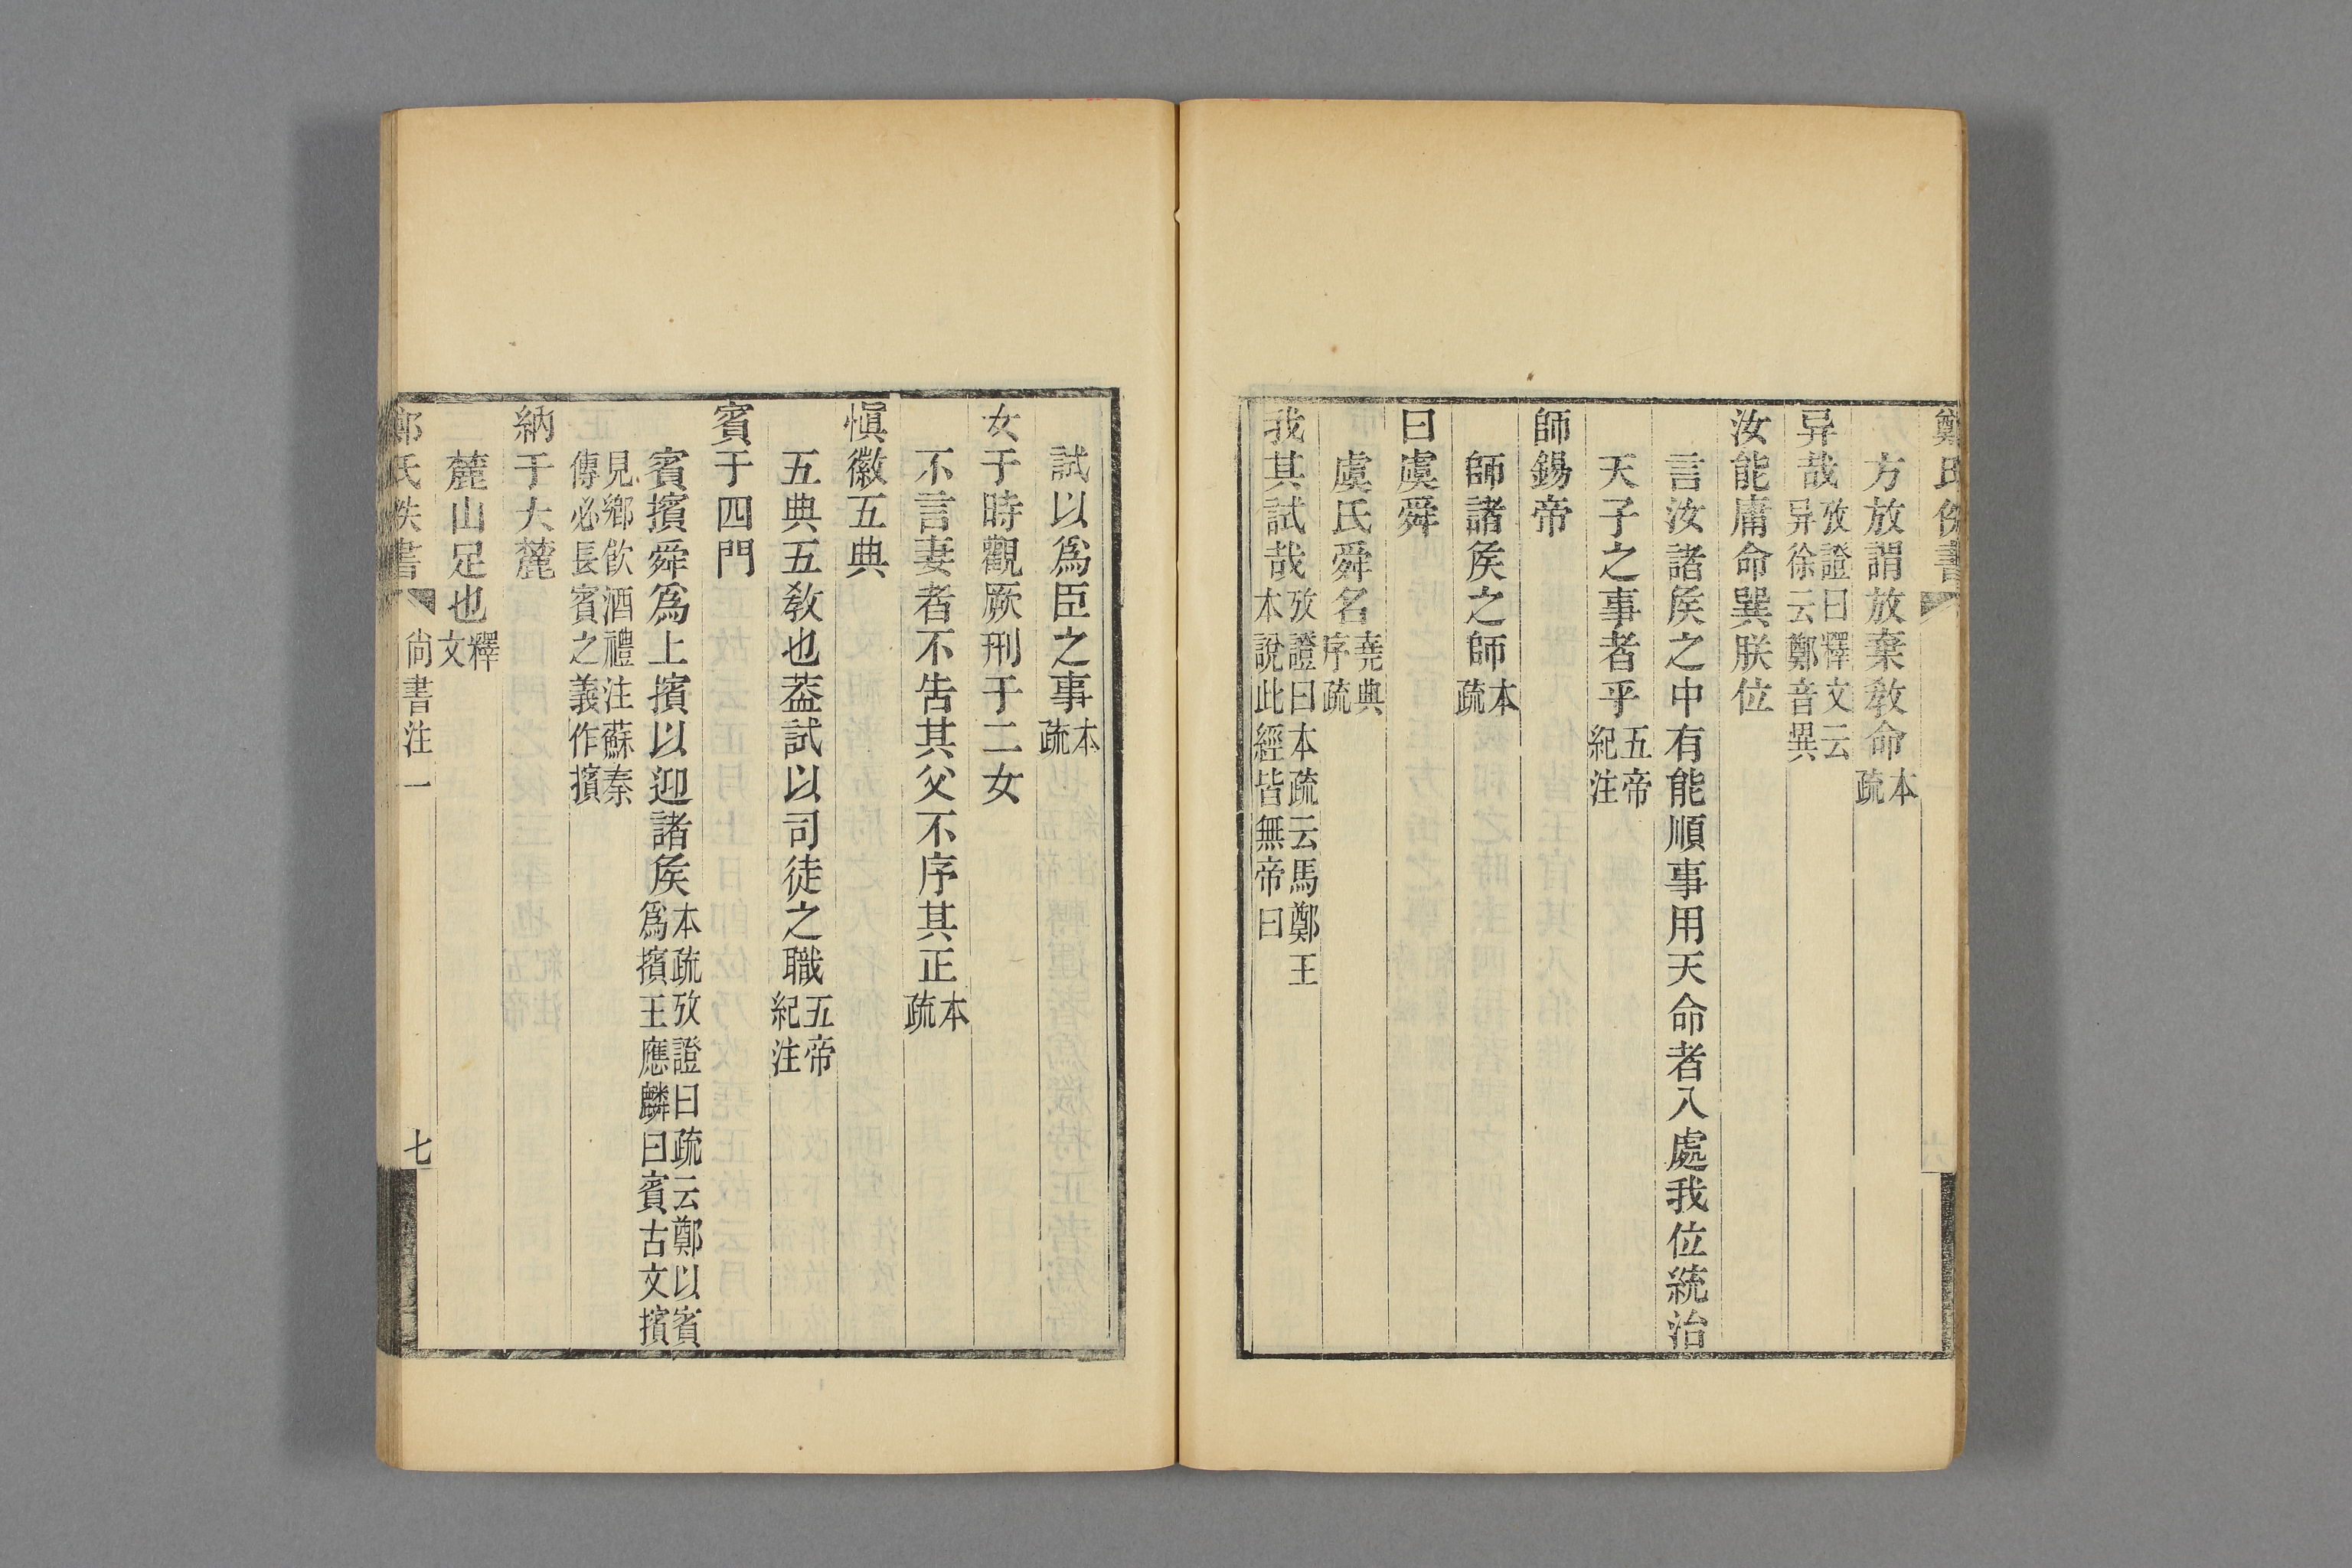 方放謂放棄教命本疏
异哉攷證曰釋文云异徐云鄭音異
汝能庸命巽朕位
言汝諸矦之中有能順事用天命者入處我位統治
天子之事者乎五帝紀注
師錫帝
師諸矦之師本疏
曰虞舜
虞氏舜名堯典序疏
我其試哉攷證曰本疏云馬鄭王本說此經皆無帝曰
試以爲臣之事本疏
女于時觀厥刑于二女
不言妻者不告其父不序其正本疏
愼徽五典
五典五敎也葢試以司徒之職五帝紀注
賓于四門
賓擯舜爲上擯以迎諸矦本疏攷證曰疏云鄭以賓爲擯王應麟曰賓古文擯
見鄉飮酒禮注蘇秦傳必長賓之義作擯
納于大麓
麓山足也釋文
鄭氏佚書 尙書注一 七